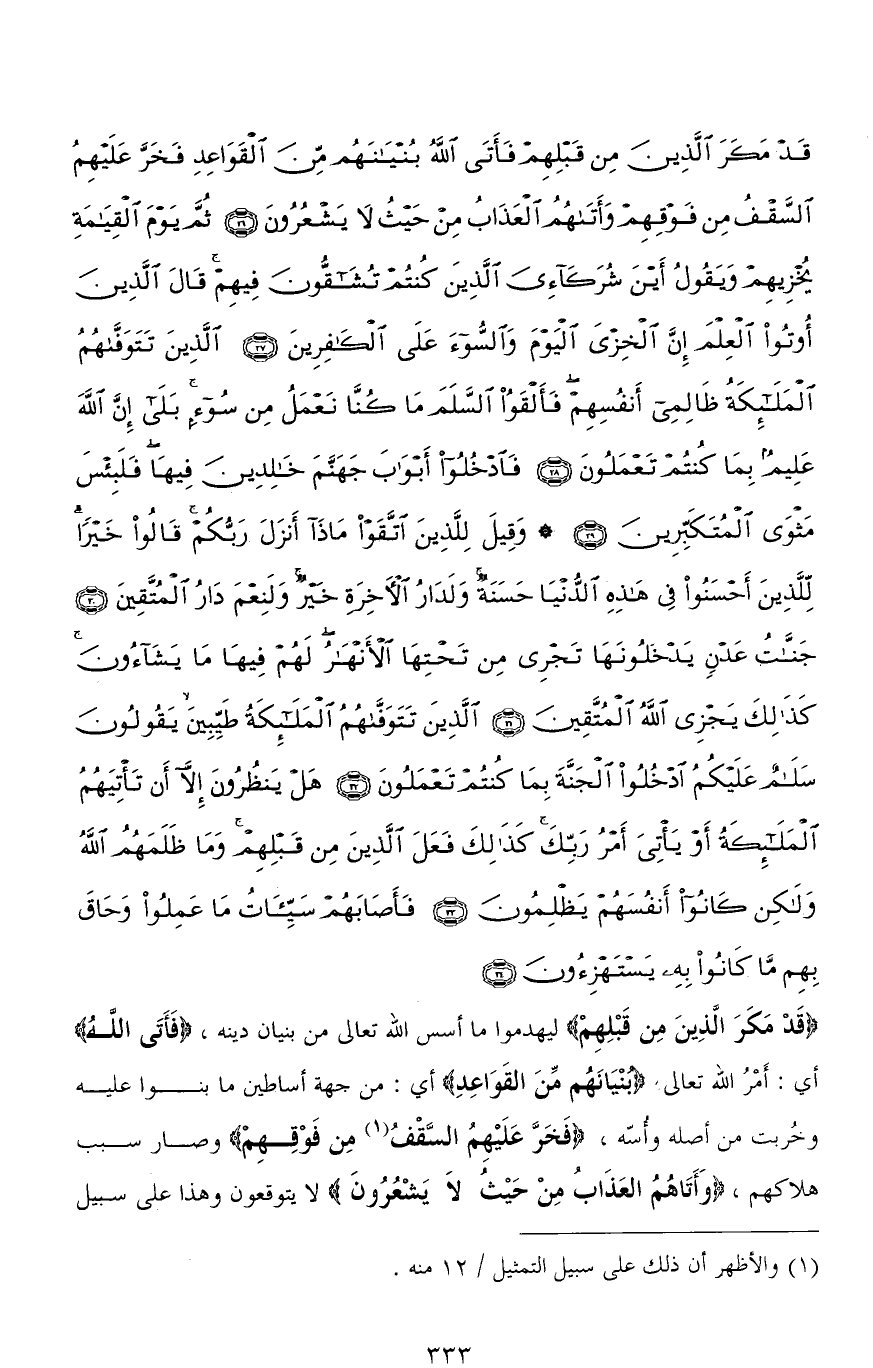 قَدْ مَكَرَ ٱلَّذِينَ مِن قَبْلِهِمْ فَأَتَى ٱللَّهُ بُنْيَٰنَهُم مِّنَ ٱلْقَوَاعِدِ فَخَرَّ عَلَيْهِمُ
ٱلسَّقْفُ مِن فَوْقِهِمْ وَأَتَىٰهُمُ ٱلْعَذَابُ مِنْ حَيْثُ لَا يَشْعُرُونَ ﴿٢٦﴾ ثُمَّ يَوْمَ ٱلْقِيَٰمَةِ
يُخْزِيهِمْ وَيَقُولُ أَيْنَ شُرَكَآءِىَ ٱلَّذِينَ كُنتُمْ تُشَٰٓقُّونَ فِيهِمْ ۚ قَالَ ٱلَّذِينَ
أُوتُوا۟ ٱلْعِلْمَ إِنَّ ٱلْخِزْىَ ٱلْيَوْمَ وَٱلسُّوٓءَ عَلَى ٱلْكَٰفِرِينَ ﴿٢٧﴾ ٱلَّذِينَ تَتَوَفَّىٰهُمُ
ٱلْمَلَٰٓئِكَةُ ظَالِمِىٓ أَنفُسِهِمْ ۖ فَأَلْقَوُا۟ ٱلسَّلَمَ مَا كُنَّا نَعْمَلُ مِن سُوٓءٍۭ ۚ بَلَىٰٓ إِنَّ ٱللَّهَ
عَلِيمٌۢ بِمَا كُنتُمْ تَعْمَلُونَ ﴿٢٨﴾ فَٱدْخُلُوٓا۟ أَبْوَٰبَ جَهَنَّمَ خَٰلِدِينَ فِيهَا ۖ فَلَبِئْسَ
مَثْوَى ٱلْمُتَكَبِّرِينَ ﴿٢٩﴾ * وَقِيلَ لِلَّذِينَ ٱتَّقَوْا۟ مَاذَآ أَنزَلَ رَبُّكُمْ ۚ قَالُوا۟ خَيْرًا ۗ
لِّلَّذِينَ أَحْسَنُوا۟ فِى هَٰذِهِ ٱلدُّنْيَا حَسَنَةٌ ۚ وَلَدَارُ ٱلْـَٔاخِرَةِ خَيْرٌ ۚ وَلَنِعْمَ دَارُ ٱلْمُتَّقِينَ ﴿٣٠﴾
جَنَّٰتُ عَدْنٍ يَدْخُلُونَهَا تَجْرِى مِن تَحْتِهَا ٱلْأَنْهَٰرُ ۖ لَهُمْ فِيهَا مَا يَشَآءُونَ ۚ
كَذَٰلِكَ يَجْزِى ٱللَّهُ ٱلْمُتَّقِينَ ﴿٣١﴾ ٱلَّذِينَ تَتَوَفَّىٰهُمُ ٱلْمَلَٰٓئِكَةُ طَيِّبِينَ ۙ يَقُولُونَ
سَلَٰمٌ عَلَيْكُمُ ٱدْخُلُوا۟ ٱلْجَنَّةَ بِمَا كُنتُمْ تَعْمَلُونَ ﴿٣٢﴾ هَلْ يَنظُرُونَ إِلَّآ أَن تَأْتِيَهُمُ
ٱلْمَلَٰٓئِكَةُ أَوْ يَأْتِىَ أَمْرُ رَبِّكَ ۚ كَذَٰلِكَ فَعَلَ ٱلَّذِينَ مِن قَبْلِهِمْ ۚ وَمَا ظَلَمَهُمُ ٱللَّهُ
وَلَٰكِن كَانُوٓا۟ أَنفُسَهُمْ يَظْلِمُونَ ﴿٣٣﴾ فَأَصَابَهُمْ سَيِّـَٔاتُ مَا عَمِلُوا۟ وَحَاقَ
بِهِم مَّا كَانُوا۟ بِهِۦ يَسْتَهْزِءُونَ ﴿٣٤﴾
﴿قَدْ مَكَرَ الَّذِينَ مِن قَبْلِهِمْ﴾ ليهدموا ما أسس الله تعالى من بنيان دينه ، ﴿فَأَتَى اللَّهُ﴾
أي : أَمْرُ الله تعالى ﴿بُنْيَانَهُم مِّنَ القَوَاعِدِ﴾ أي : من جهة أساطين ما بنــوا عليــه
وخُربت من أصله وأُسّه ، ﴿فَخَرَّ عَلَيْهِمُ السَّقْفُ(١) مِن فَوْقِهِمْ﴾ وصــار ســبب
هلاكهم ، ﴿وَأَتَاهُمُ العَذَابُ مِنْ حَيْثُ لاَ يَشْعُرُونَ﴾ لا يتوقعون وهذا على سبيل
(١) والأظهر أن ذلك على سبيل التمثيل / ١٢ منه .
٣٣٣